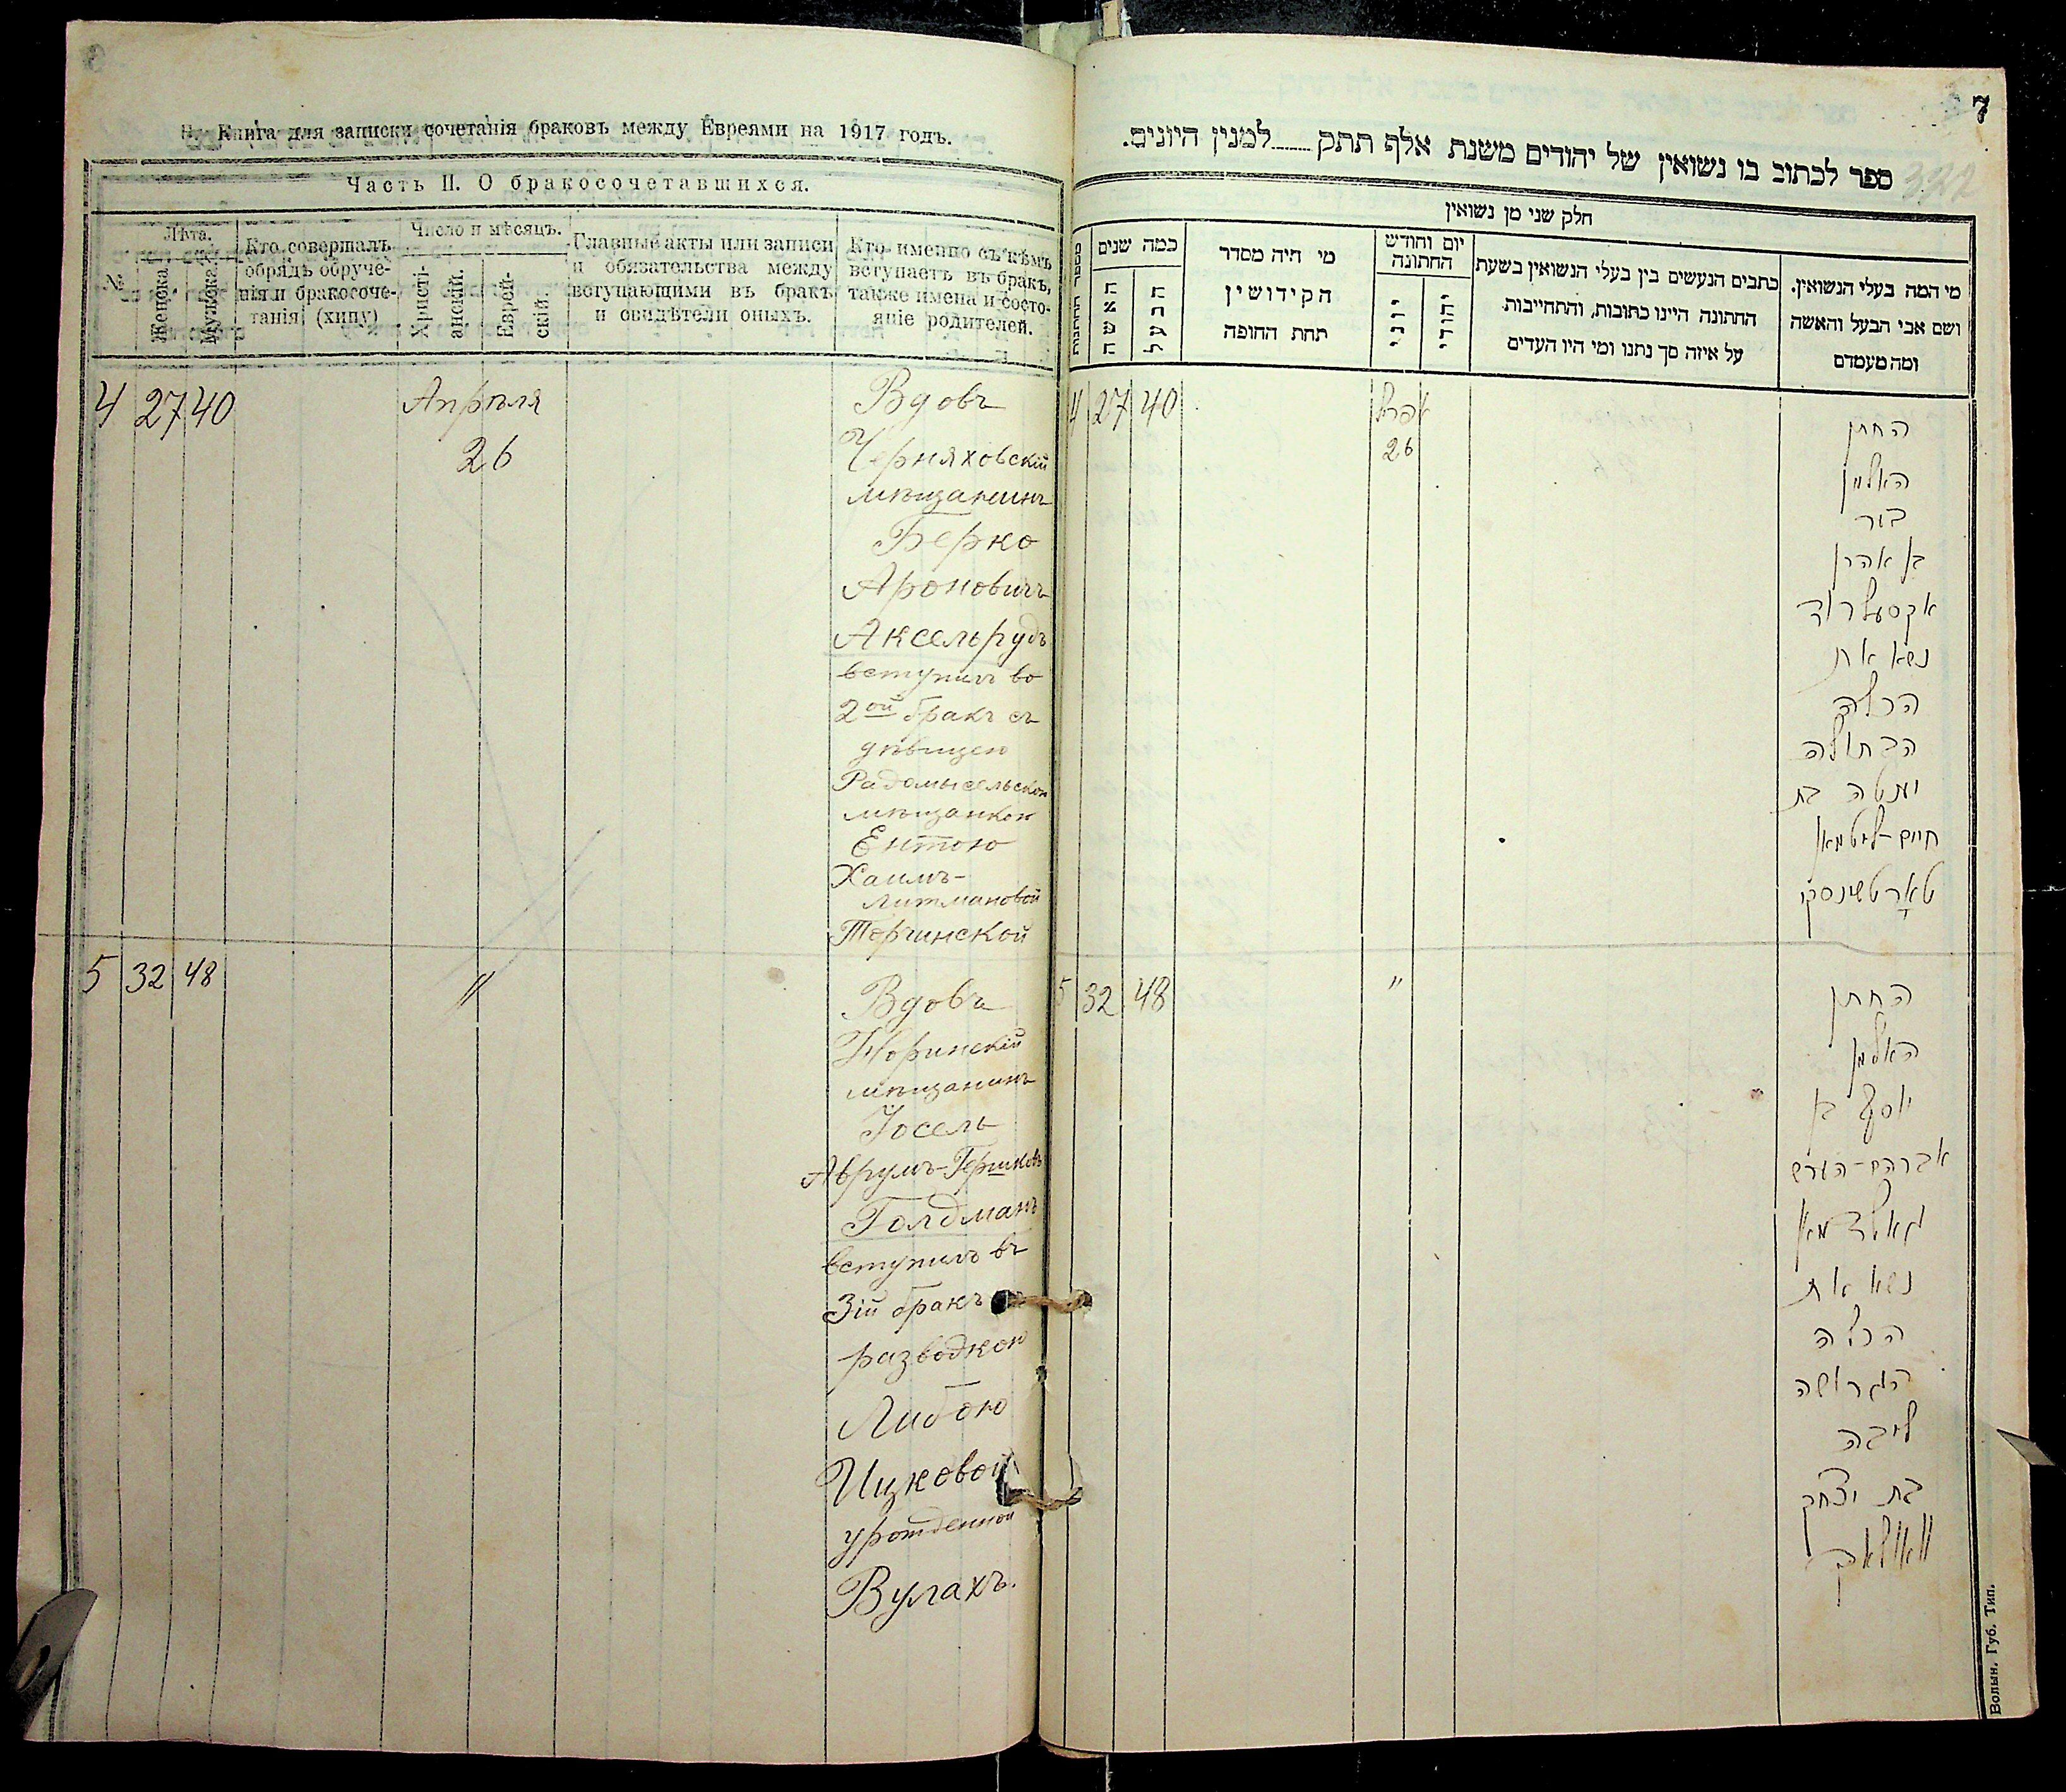 II. Книга для записки сочетанія браковъ между Евреями на 1917 годъ.
Часть II. О бракосочетавшихся.
№
Лѣта.
Женска.
Мужска.
Кто совершалъ
обрядъ обруче-
нія и бракосоче-
танія (хипу)
Число и мѣсяцъ.
Христі-
анскій.
Еврей-
скій.
Главные акты или записи
и обязательства между
вступающими въ бракъ
и свидѣтели оныхъ.
Кто именно съ кѣмъ
вступаетъ въ бракъ,
также имена и состо-
яніе родителей.
4 27 40 Апрѣля Вдовъ
26 Черняховскій
мѣщанинъ
Берко
Ароновичъ
Аксельрудъ
вступилъ во
2ой бракъ съ
дѣвицею
Радомысельскою
мѣщанкою
Ентою
Хаимъ-
Литмановой
Торчинской
5 32 48 " Вдовъ
Норинскій
мѣщанинъ
Іосель
Аврумъ-Гершковъ
Голдманъ
вступилъ въ
3ій бракъ
разводкою
Либою
Ицковой
урожденной
Вулахъ.
7
322
ספר לכתוב בו נשואין של יהודים משנת אלף תתק למנין היונים.
חלק שני מן נשואין
מספר החתנות
כמה שנים
האשה
הבעל
מי היה מסדר
הקידושין
תחת החופה
יום וחודש
החתונה
יוני
יהודי
כתבים הנעשים בין בעלי הנשואין בשעת
החתונה היינו כתובות, והתחייבות
על איזה סך נתנו ומי היו העדים
מי המה בעלי הנשואין.
ושם אבי הבעל והאשה
ומה מעמדם
4 27 40 אפריל החתן
26 האלמן
בער
בן אהרן
אקסעלרוד
נשא את
הכלה
הבתולה
יענטה בת
חיים-ליטמאן
טארטשינסקי
5 32 48 " החתן
האלמן
יוסף בן
אברהם-הערש
גאלדמאן
נשא את
הכלה
הגרושה
ליבה
בת יצחק
וואולאך
Волын. Губ. Тип.